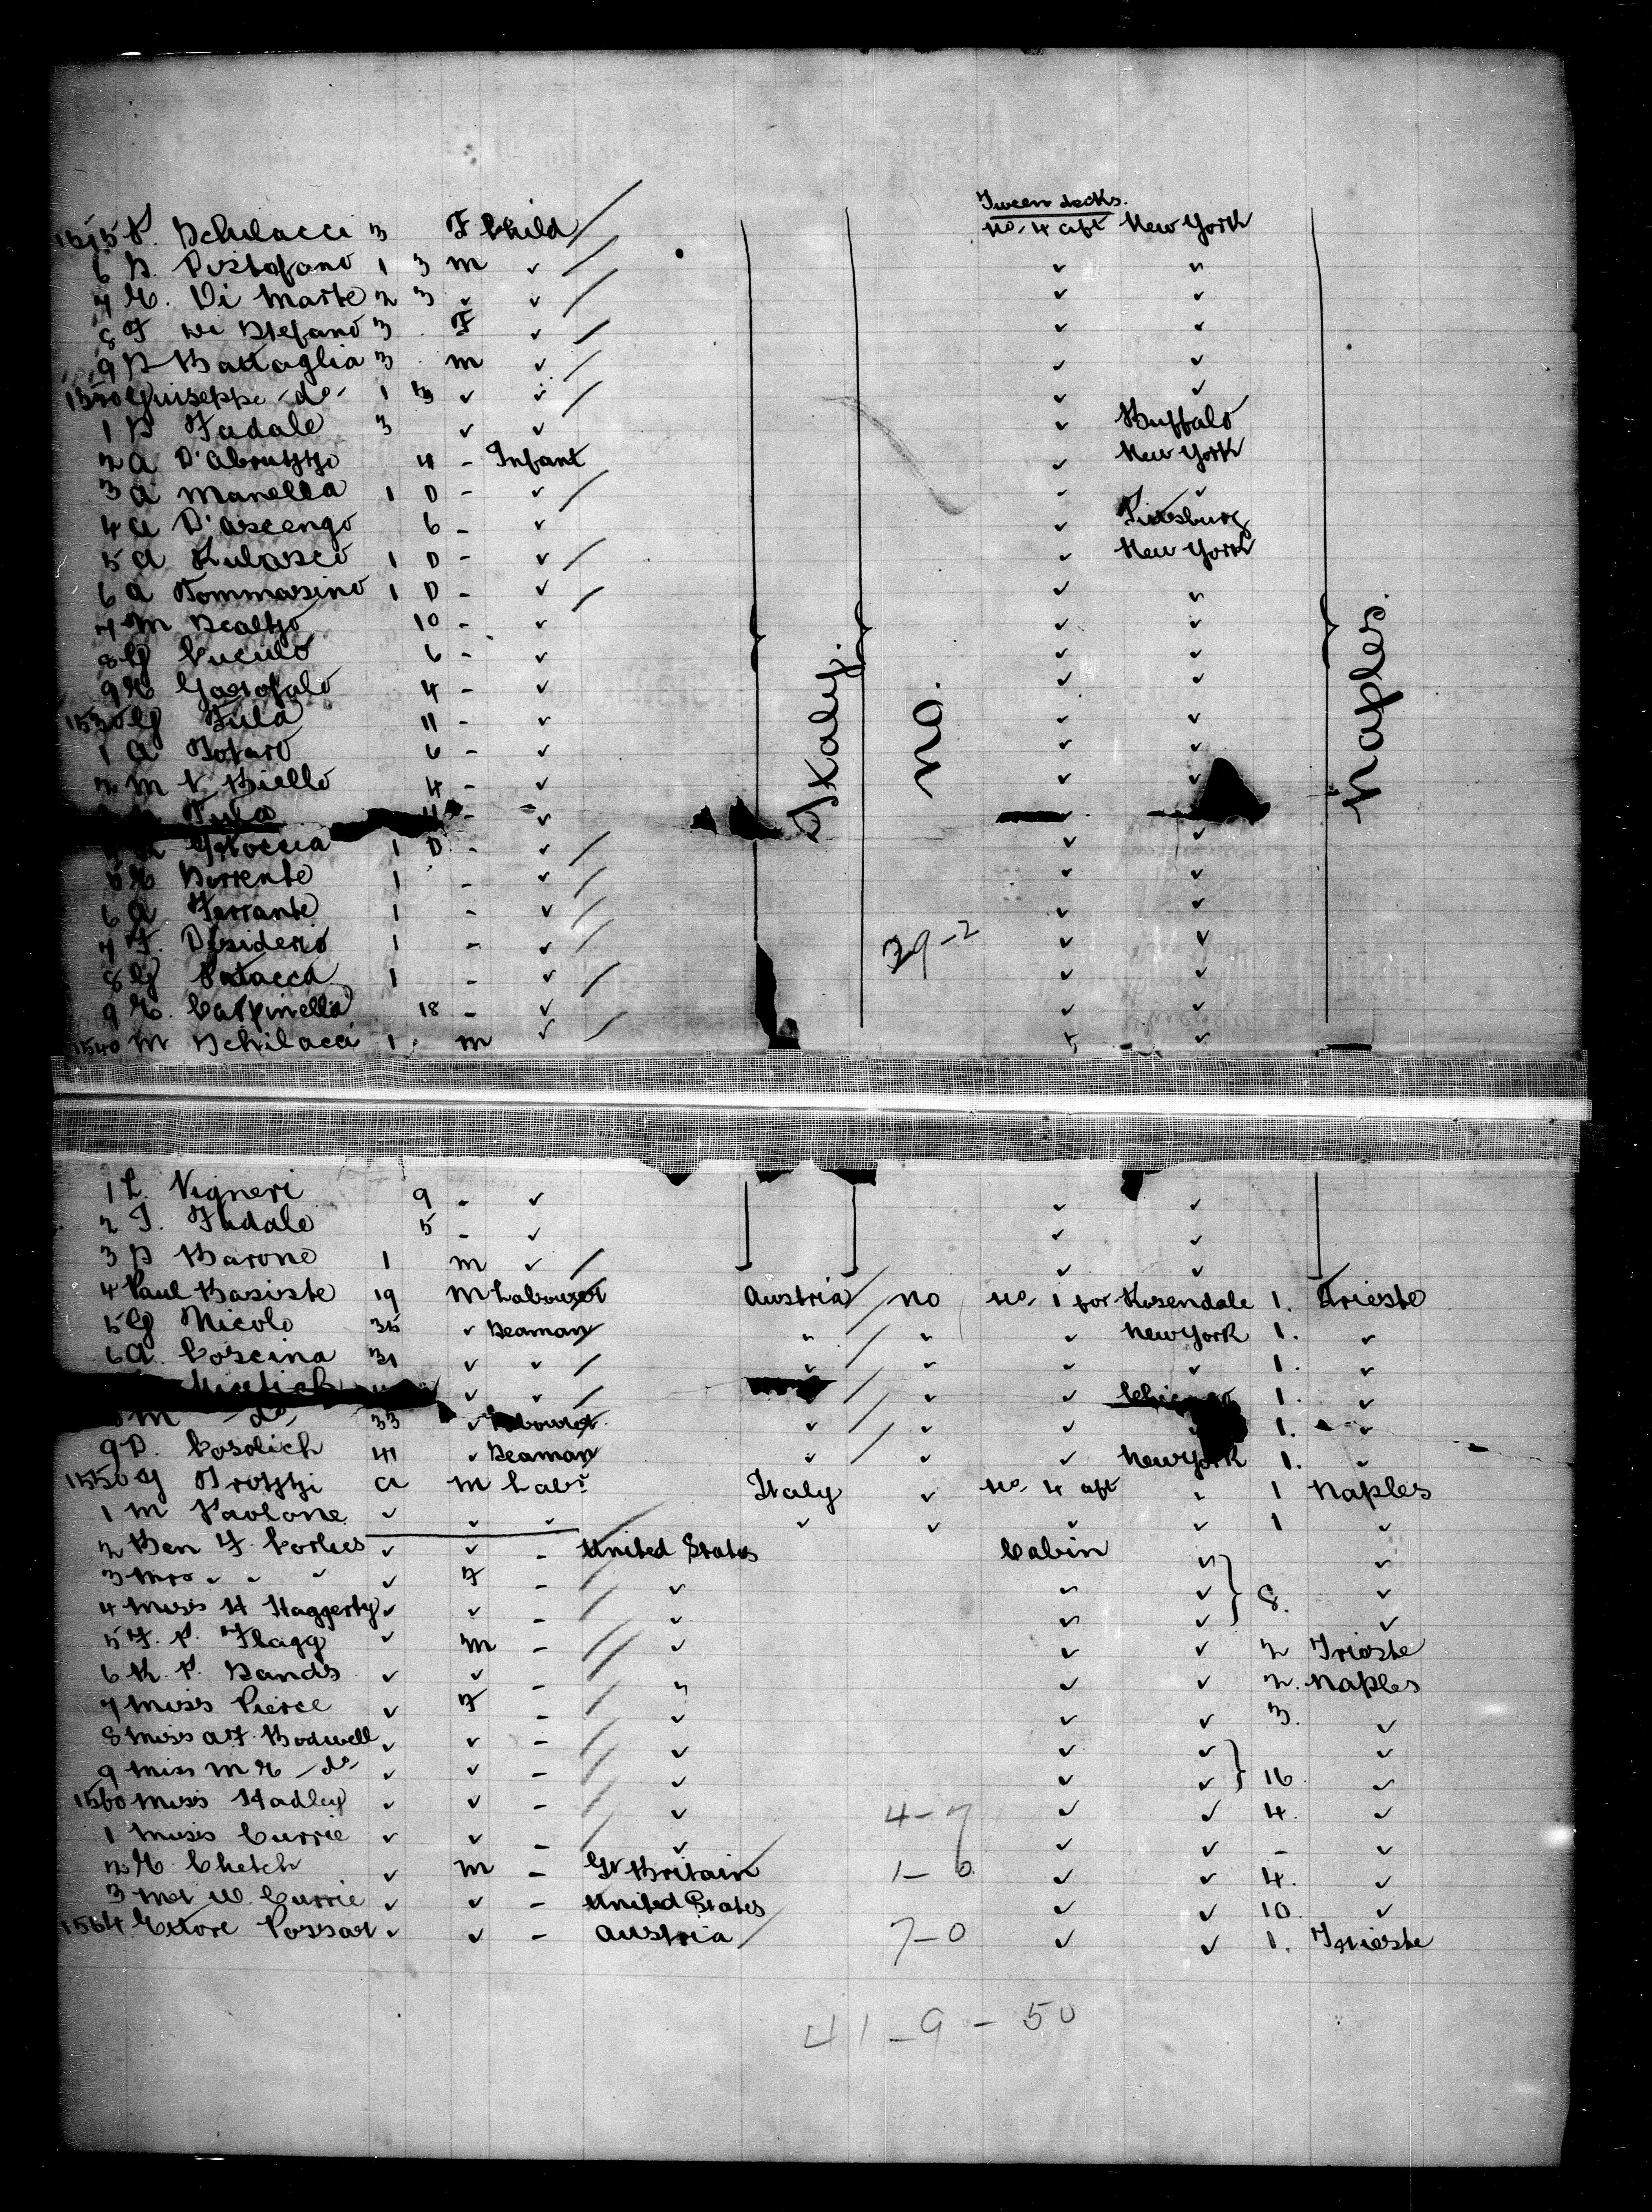 Tween decks.
1515 P. Schilacci 3 F Child No. 4 aft New York
6 S. Pristofano 1 3 m ✓ ✓ ✓
7 E. Di Marte 2 3 ✓ ✓ ✓ ✓
8 F Di Stefano 3 F ✓ ✓ ✓
9 S Battaglia 3 m ✓ ✓ ✓
1520 Guiseppe - do - 1 3 ✓ ✓ ✓ ✓
1 S Fadale 3 ✓ ✓ ✓ Buffalo
2 A D'Abruzzo 4 - Infant ✓ New York
3 A Manella 1 0 - ✓ ✓ ✓
4 A D'Ascengo 6 - ✓ ✓
5 A Rubasco 1 0 - ✓ ✓ New York
6 A Tommasino 1 0 - ✓ ✓ ✓
7 M Scalzo 10 - ✓ ✓ ✓
8 G Cuculo 6 - ✓ ✓ ✓
9 E Garofalo 4 - ✓ ✓ ✓
1530 G Tula 11 - ✓ ✓ ✓
1 A Totaro 6 - ✓ ✓ ✓
2 M C. Biello 4 - ✓ ✓ ✓
Tula - ✓ ✓
Groccia 1 0 - ✓ ✓ ✓
5 E Sorrento 1 - ✓ ✓ ✓
6 A Ferrante 1 - ✓ ✓ ✓
7 F. Desiderio 1 - ✓ ✓ ✓
8 G Patacca 1 - ✓ ✓ ✓
9 E. Carpinella 18 - ✓ ✓ ✓
1540 M Schilacci 1 m ✓ ✓ ✓
Italy.
no.
Naples.
29-2
1 L. Vigneri 9 - ✓ ✓ ✓
2 T. Fadale 5 - ✓ ✓ ✓
3 S Barone 1 m ✓ ✓ ✓
4 Paul Basiste 19 M Labourer Austria no No. 1 for Rosendale 1. Trieste
5 G Nicolo 35 ✓ Seaman " " ✓ New York 1. ✓
6 A. Coscina 31 ✓ ✓ ✓ ✓ ✓ ✓ 1. ✓
✓ ✓ ✓ ✓ Chicago 1. ✓
8 M - do 33 ✓ Labourer ✓ ✓ ✓ 1. ✓
9 P. Cosolich 41 ✓ Seaman ✓ ✓ ✓ New York 1. ✓
1550 G Trozzi a M Labr. Italy ✓ No. 4 aft ✓ 1 Naples
1 M Paolone ✓ ✓ ✓ ✓ ✓ ✓ ✓ 1 ✓
2 Ben F. Corlies ✓ ✓ - United States Cabin ✓ ✓
3 Mrs ✓ ✓ ✓ ✓ F - ✓ ✓ ✓ 8. ✓
4 Miss H Haggerty ✓ ✓ - ✓ ✓ ✓ ✓
5 F. P. Flagg ✓ M - ✓ ✓ ✓ 2 Trieste
6 R. P. Sands ✓ ✓ - ✓ ✓ ✓ 2. Naples
7 Miss Pierce ✓ F - ✓ ✓ ✓ 3. ✓
8 Miss A F. Bodwell ✓ ✓ - ✓ ✓ ✓ ✓
9 Miss M E - do ✓ ✓ - ✓ ✓ ✓ 16. ✓
1560 Miss Hadley ✓ ✓ - ✓ 4-7 ✓ ✓ 4. ✓
1 Miss Currie ✓ ✓ - ✓ ✓ ✓ - ✓
2 E. Chetch ✓ m - Gt Britain 1-0 ✓ ✓ 4. ✓
3 W. Currie ✓ ✓ - United States ✓ ✓ 10. ✓
1564 Ettore Cossar ✓ ✓ - Austria 7-0 ✓ ✓ 1. Trieste
41-9-50